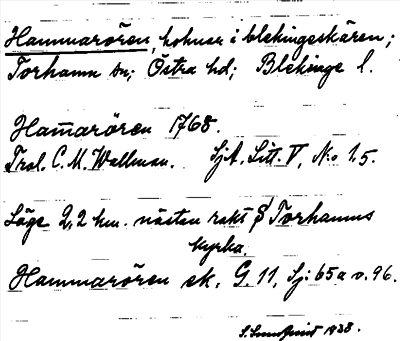 Hammarören, holmar i blekingeskären;
Torhamn sn; Östra hd; Blekinge l.
Ham̄arören 1768.
Trol. C. M. Wallman. SjA. Litt. V, N:o 1.5.
Läge 2,2 km. nästan rakt S Torhamns
kyrka.
Hammarören ek. G. 11, Sj: 65a v. 96.
S. Sundquist 1938.